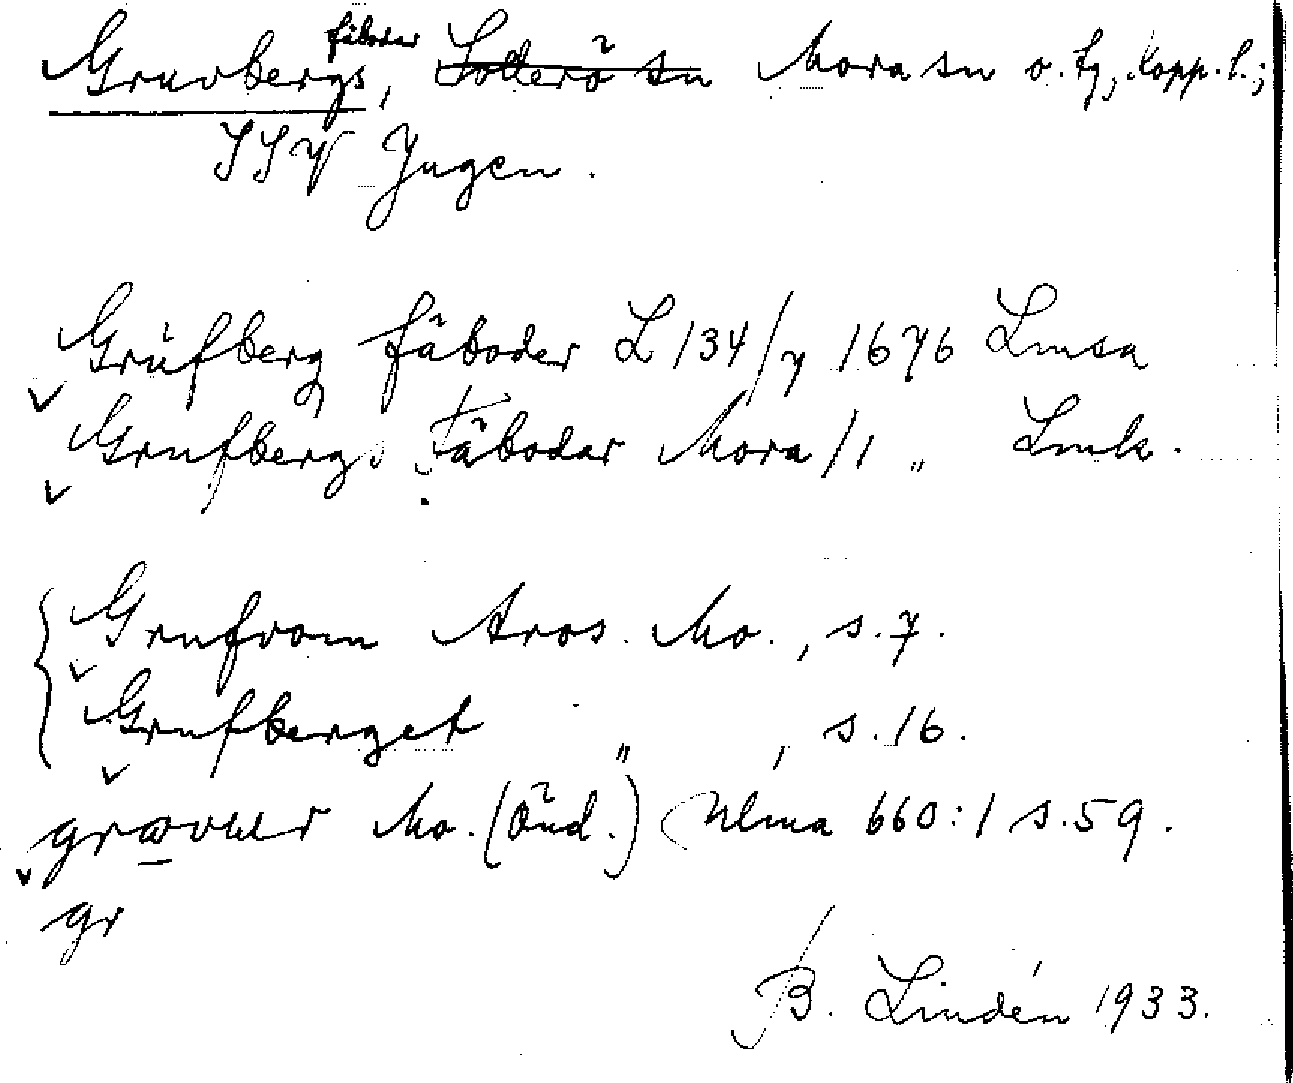 Gruvbergs fäboder, Sollerö sn Mora sn o. tg, Kopp. l.;
SSV Jugen.
Grufberg fäboder L 134/7 1676 Lmsa
Grufbergs Fäbodar Mora/1 " Lmk.
Grufvom Aros. Mo., s. 7.
Grufberget " , s. 16.
Mo. (Önd.) Ulma 660:1 s. 59.
gr
B. Lindén 1933.